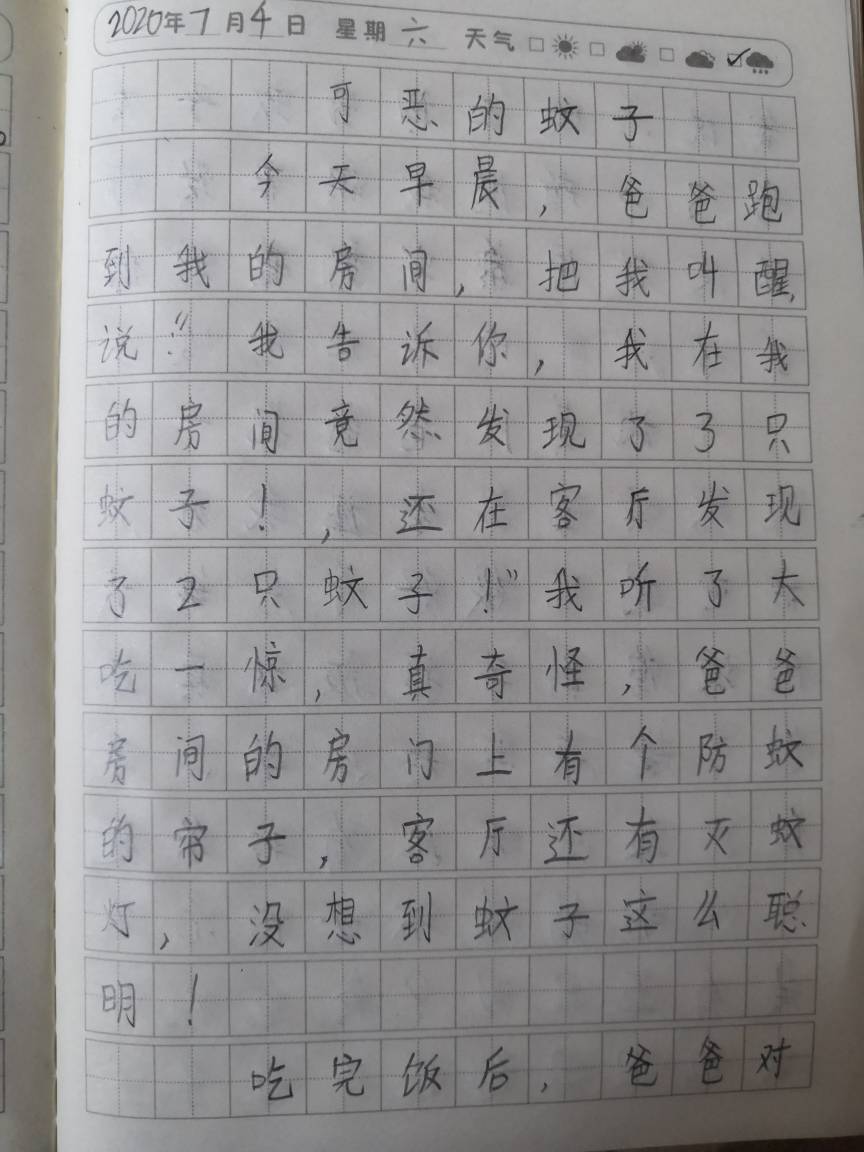 2020年7月4日 星期六 天气
可恶的蚊子
今天早晨，爸爸跑
到我的房间，把我叫醒，
说：“我告诉你，我在我
的房间竟然发现了3只
蚊子！，还在客厅发现
了2只蚊子！”我听了大
吃一惊，真奇怪，爸爸
房间的房门上有个防蚊
的帘子，客厅还有灭蚊
灯，没想到蚊子这么聪
明！
吃完饭后，爸爸对